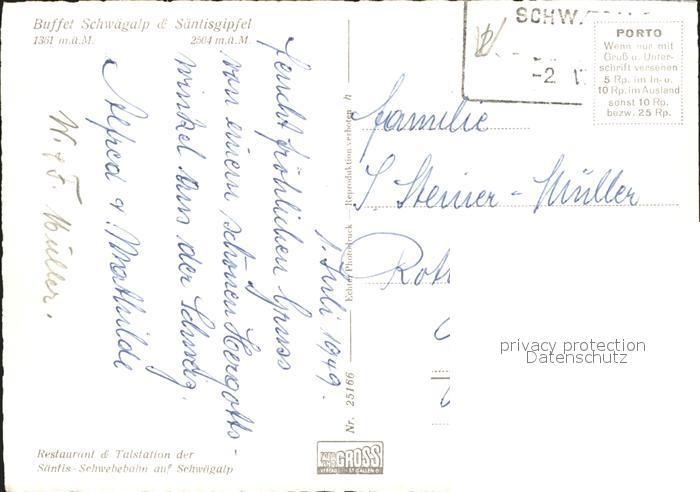 Buffet Schwägalp & Säntisgipfel
1361 m.ü.M. 2504 m.ü.M.
1. Juli 1949.
feucht fröhlichen Gruss
von einem schönen Hergotts-
winkel aus der Schweiz.
Alfred & Mathilde
W. & F. Müller.
Restaurant & Talstation der
Säntis-Schwebebahn auf Schwägalp
Nr. 25166
Echte Photodruck — Reproduktion verboten
GROSS
ST. GALLEN
SCHW
-2
PORTO
Wenn nur mit
Gruß u. Unter-
schrift versehen
5 Rp. im In- u.
10 Rp. im Ausland
sonst 10 Rp.
bezw. 25 Rp.
Familie
J. Steiner - Müller
privacy protection
Datenschutz